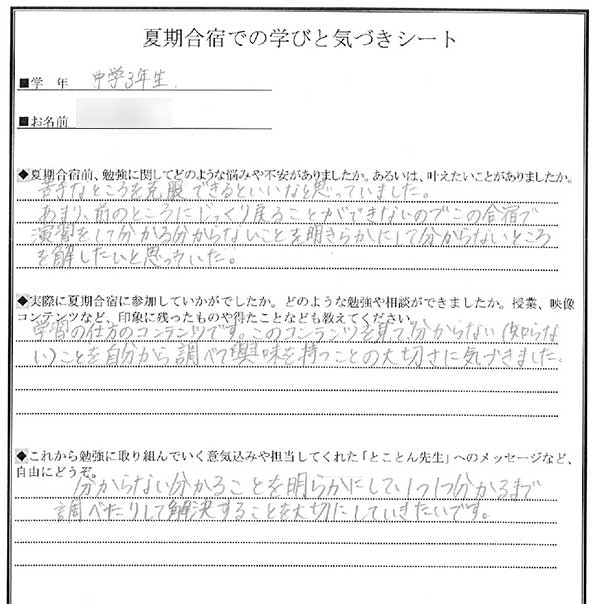 夏期合宿での学びと気づきシート
■学 年 中学3年生.
■お名前
◆夏期合宿前、勉強に関してどのような悩みや不安がありましたか。あるいは、叶えたいことがありましたか。
苦手なところを克服できるといいなと思っていました。
あまり、前のところにじっくり戻ることができないのでこの合宿で
演習をして分かる分からないことを明きらかにして分からないところ
を解したいと思っていた。
◆実際に夏期合宿に参加していかがでしたか。どのような勉強や相談ができましたか。授業、映像
コンテンツなど、印象に残ったものや得たことなども教えてください。
学習の仕方のコンテンツです。このコンテンツを見て分からない(知らな
い)ことを自分から調べて興味を持つことの大切さに気づきました。
◆これから勉強に取り組んでいく意気込みや担当してくれた「とことん先生」へのメッセージなど、
自由にどうぞ。
分からない分かることを明らかにして1つ1つ分かるまで
調べたりして解決することを大切にしていきたいです。